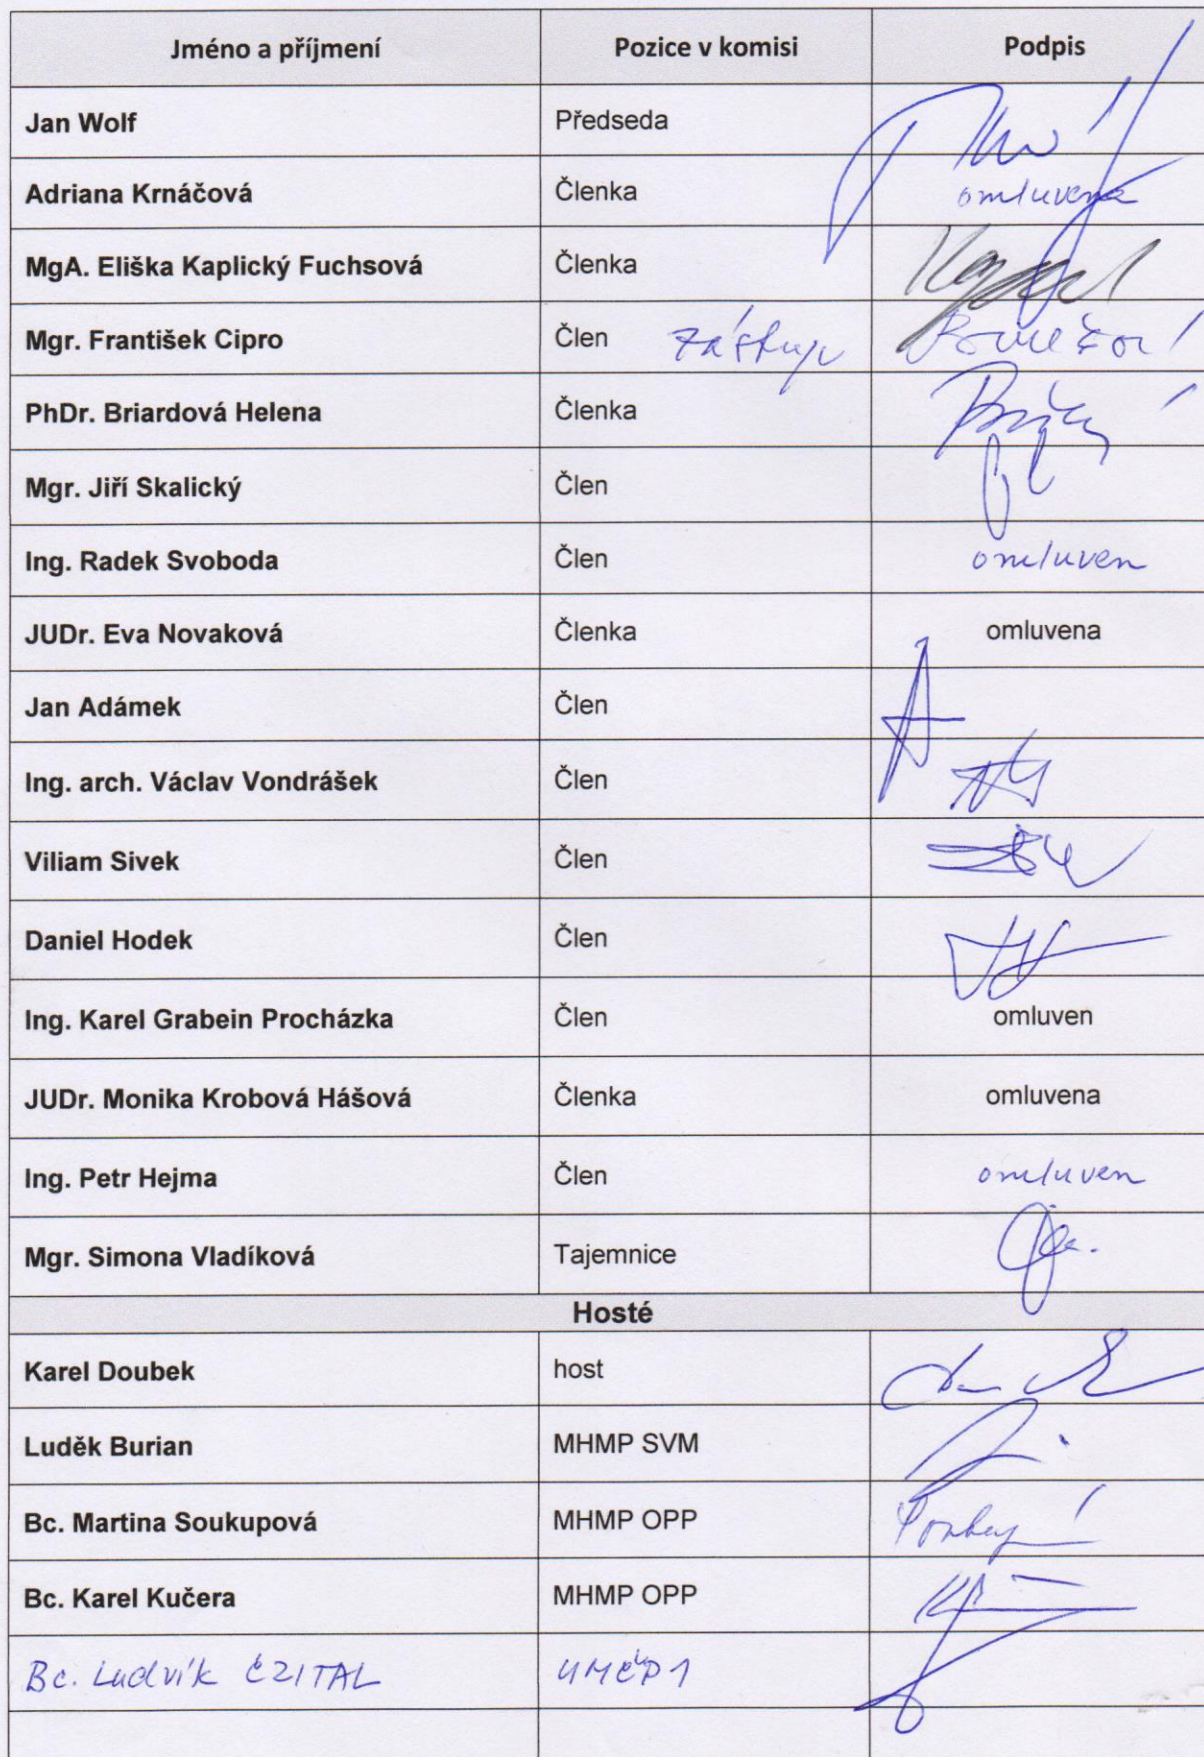 Jméno a příjmení Pozice v komisi Podpis
Jan Wolf Předseda
Adriana Krnáčová Členka omluvena
MgA. Eliška Kaplický Fuchsová Členka
Mgr. František Cipro Člen
PhDr. Briardová Helena Členka
Mgr. Jiří Skalický Člen
Ing. Radek Svoboda Člen omluven
JUDr. Eva Novaková Členka omluvena
Jan Adámek Člen
Ing. arch. Václav Vondrášek Člen
Viliam Sivek Člen
Daniel Hodek Člen
Ing. Karel Grabein Procházka Člen omluven
JUDr. Monika Krobová Hášová Členka omluvena
Ing. Petr Hejma Člen omluven
Mgr. Simona Vladíková Tajemnice
Hosté
Karel Doubek host
Luděk Burian MHMP SVM
Bc. Martina Soukupová MHMP OPP
Bc. Karel Kučera MHMP OPP
Bc. Ludvík CZITAL ÚMČP1